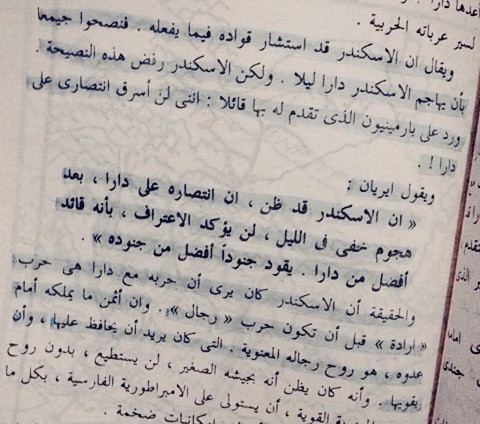 لسير عرباته الحربية .
ويقال ان الاسكندر قد استشار قواده فيما يفعله . فنصحوا جميعا
بأن يهاجم الاسكندر دارا ليلا . ولكن الاسكندر رفض هذه النصيحة .
ورد على بارمينيون الذى تقدم له بها قائلا : اننى لن أسرق انتصارى على
دارا ! .
ويقول ايريان :
« ان الاسكندر قد ظن ، ان انتصاره على دارا ، بعد
هجوم خفى فى الليل ، لن يؤكد الاعتراف ، بأنه قائد
أفضل من دارا . يقود جنوداً أفضل من جنوده » .
والحقيقة أن الاسكندر كان يرى أن حربه مع دارا هى حرب
« ارادة » قبل أن تكون حرب « رجال » . وان أثمن ما يملكه أمام
عدوه ، هو روح رجاله المعنوية . التى كان يريد أن يحافظ عليها ، وأن
يقويها . وأنه كان يظن أنه بجيشه الصغير ، لن يستطيع ، بدون روح
القوية ، أن يستولى على الامبراطورية الفارسية ، بكل ما
امكانيات ضخمة .